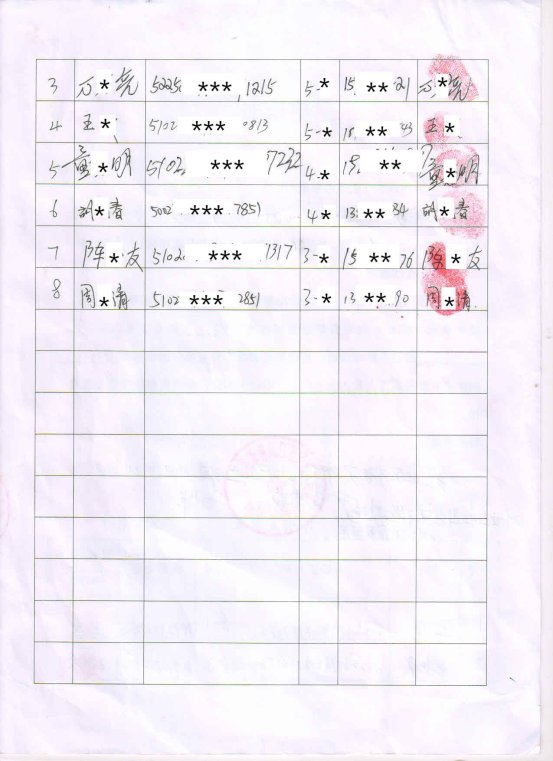 3 万*亮 50225. *** 1215 5-* 15 ** 21 万*亮
4 王* 5102 *** 0813 5-* 18 ** 43 王*
5 童*明 5102 *** 7232 4-* 19 ** 童*明
6 胡*春 5002 *** 7851 4* 13 ** 84 胡*春
7 陈*友 5102 *** 1317 3-* 15 ** 76 陈*友
8 周*清 5102 *** 2851 3-* 13 ** 90 周*清